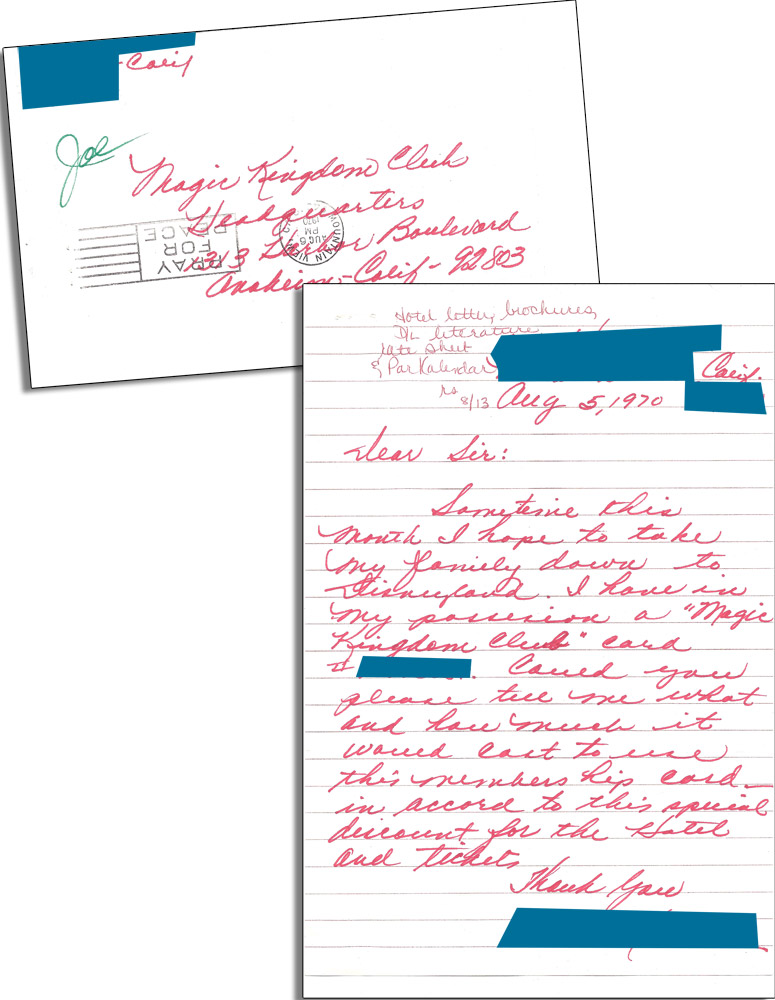 -Calif
Joe
Magic Kingdom Club
Headquarters
1313 Harbor Boulevard
Anaheim,-Calif- 92803
PRAY
FOR
PEACE
MOUNTAIN VIEW
PM
AUG 6
1970
Hotel letter, brochures,
D/L literature
rate sheet
& Par Kalendar
rs
8/13
Calif.
Aug 5, 1970
Dear Sir:
Sometime this
month I hope to take
my family down to
Disneyland. I have in
my possesion a "Magic
Kingdom Club" card
#
. Could you
please tell me what
and how much it
would cost to use
this membership card
in accord to this special
discount for the Hotel
and tickets
Thank You